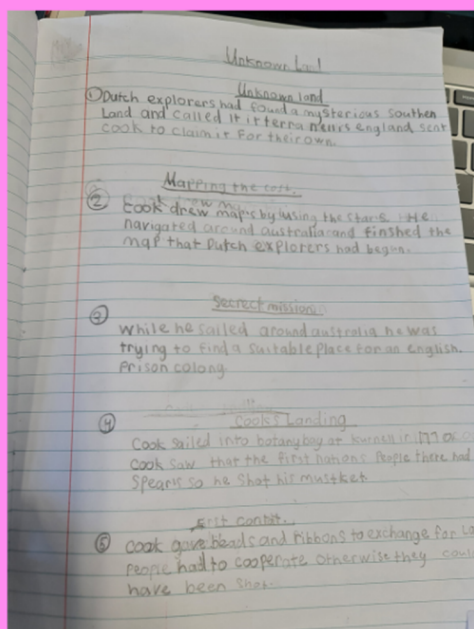 Unknown Land
Unknown land
① Dutch explorers had found a mysterious southen
Land and called it
England sent
cook to claim it for their own.
Mapping the
② Cook drew maps by using the stars. He
navigated around australia and finshed the
map that Dutch explorers had began.
Secrect mission
③
While he sailed around australia he was
trying to find a suitable place for an english
Prison colony
④ Cook's Landing
Cook sailed into botany bay at
Cook saw that the first nations People there had
Spears so he shot his mustket
⑤ cook gave beads and ribbons to exchange for
People had to cooperate otherwise they
have been shot.